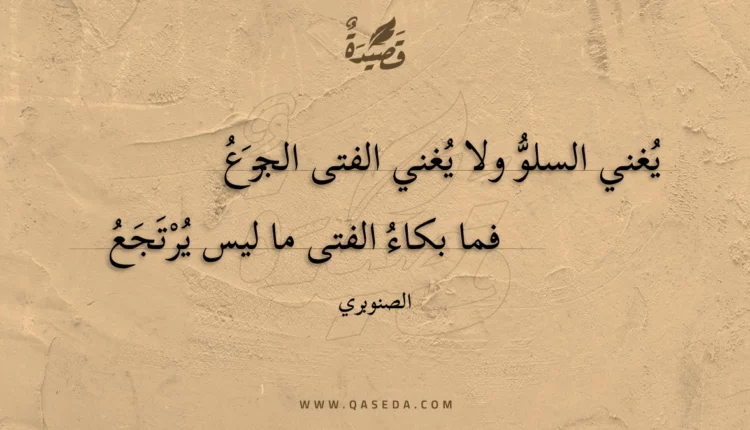 قَصِيْدَةٌ
يُغني السلوُّ ولا يُغني الفتى الجزَعُ
فما بكاءُ الفتى ما ليس يُرْتَجَعُ
الصنوبري
WWW.QASEDA.COM